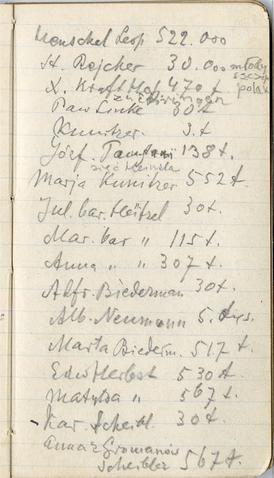 Henschel Leop 522.000
A. Rejcher 30.000 młody
X. Kraft Hof 470 t polak
Paw Lincke 60 t
Kunitzer 3. t
Józf. 138 t.
zięć Heinzla
Marja Kunitzer 552 t.
Jul. bar. Heitzel 30 t.
Mar. bar " 115 t.
Anna " " 307 t.
Alfr. Biederman 30 t.
Alb. Neumann 5. tys.
Marta Biederm. 517 t.
Edw Herbst 530 t.
Matylda " 567 t.
Kar. Scheibl. 30 t.
Anna z Gromanów
Scheibler 567 t.